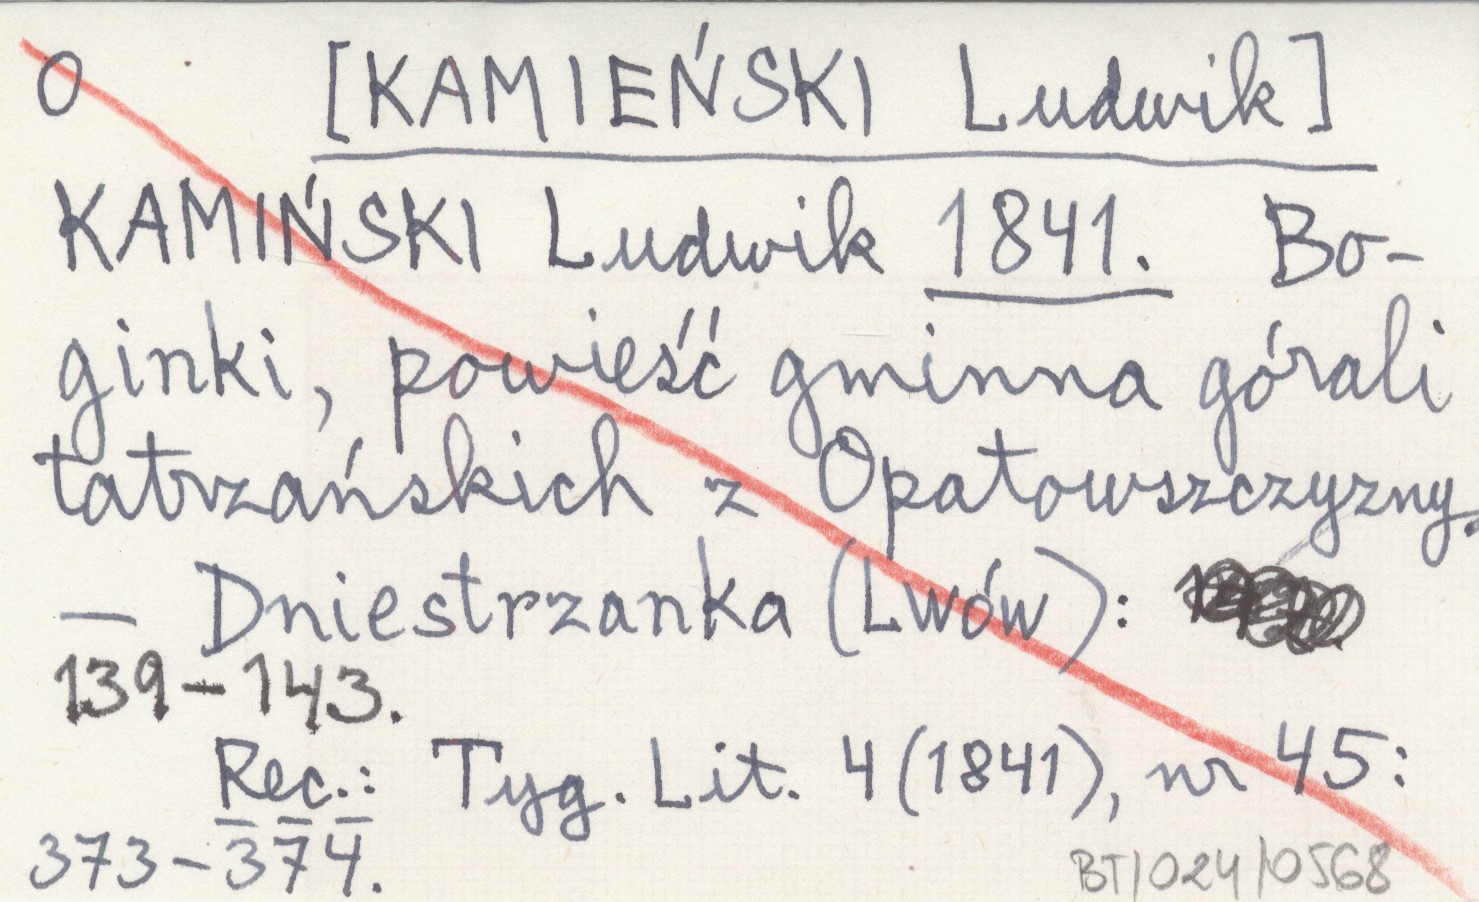 O [KAMIEŃSKI Ludwik]
KAMIŃSKI Ludwik 1841. Bo-
ginki, powieść gminna górali
tatrzańskich z Opatowszczyzny.
— Dniestrzanka (Lwów):
139-143.
Rec.: Tyg. Lit. 4 (1841), nr 45:
373-374.
BT/024/0568